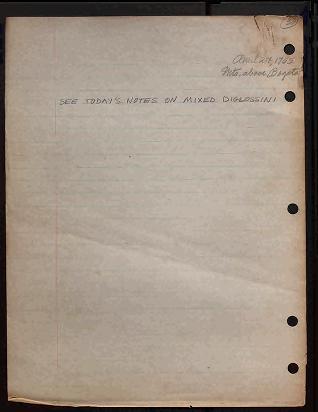 April 29, 1965
Mts. above Bogota
SEE TODAY'S NOTES ON MIXED DIGLOSSINI